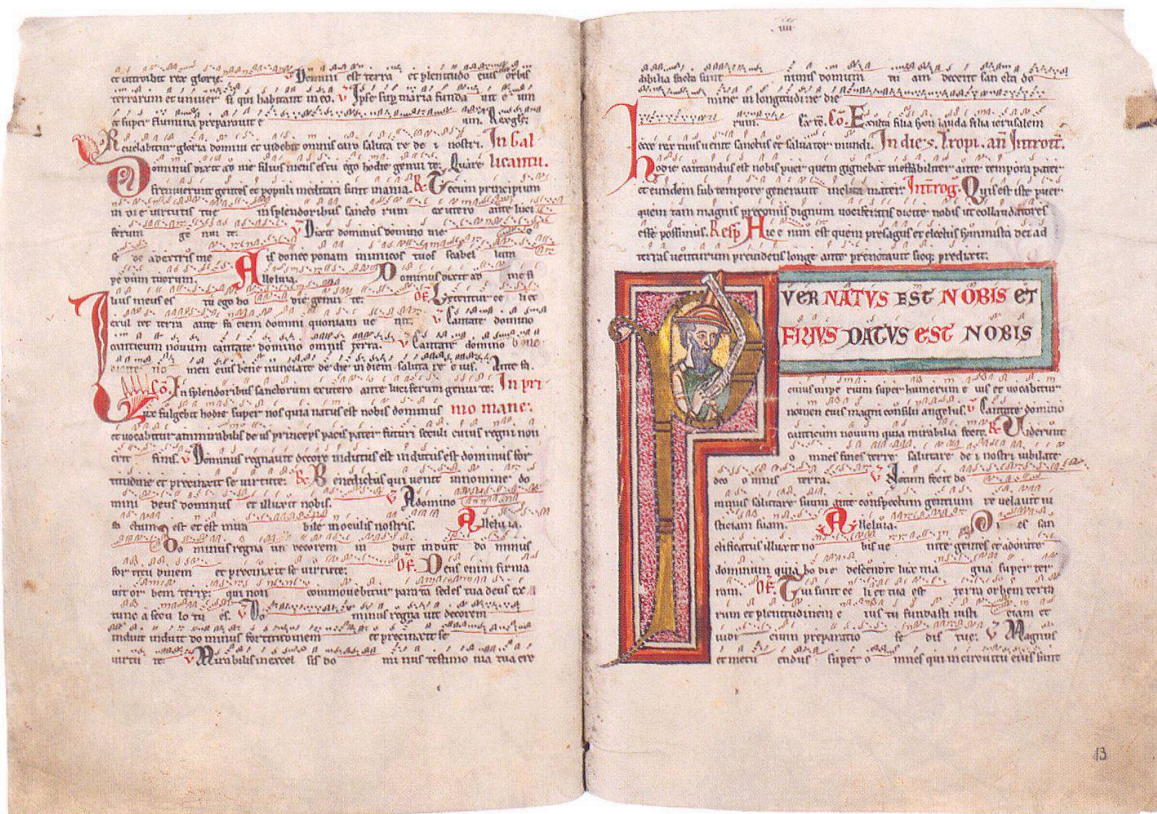 et introibit rex glorie. ℣ Domini est terra et plenitudo eius orbis
terrarum et univer si qui habitant in eo. ℣ Ipse sup maria funda uit e um
et super flumina preparauit e um. Rex glr̄.
Reuelabitur gloria domini et uidebit omnis caro saluta re de i nostri. In gal
Dominus dixit ad me filius meus es tu ego hodie genui te. Quare licantu.
fremuerunt gentes et populi meditati sunt inania. Tecum principium
in die uirtutis tue in splendoribus sancto rum ex utero ante luci
ferum ge nui te. ℣ Dixit dominus domino me o
se de adextris me is donec ponam inimicos tuos scabel lum
pe dum tuorum. Alleluia. Dominus dixit ad me fi
lius meus es tu ego ho die genui te. Of. Letentur ce li et
exul tet terra ante fa ciem domini quoniam ue nit. ℣ Cantate domino
canticum nouum cantate domino omnis terra. ℣ Cantate domino
no men eius bene nunciate de die in diem saluta re e ius. Ante fa.
Co. In splendoribus sanctorum ex utero ante luciferum genui te. In pri
Lux fulgebit hodie super nos quia natus est nobis dominus mo mane.
et uocabitur ammirabilis de us princeps pacis pater futuri seculi cuius regni non
erit finis. ℣ Dominus regnauit decore indutus est indutus est dominus for
titudine et precinxit se uirtute. Benedictus qui uenit in nomine do
mini deus dominus et illuxit nobis. ℣ A domino
fa ctum est et est mira bile in oculis nostris. Alleluia.
Do minus regna uit decorem in duit induit do minus
for titu dinem et precinxit se uirtute. Of. Deus enim firma
uit or bem terre qui non commouebitur parata sedes tua deus ex
tunc a secu lo tu es. ℣ Do minus regna uit decorem
induit induit do minus fortitudinem et precinxit se
uirtu te. ℣ Mirabilis in excel sis do mi nus testimo nia tua cre
iiii
dibilia facta sunt nimis domum tu am decent san cta do
mine in longitudine die
rum. Co. Exulta filia syon lauda filia ierusalem
ecce rex tuus uenit sanctus et saluator mundi. In die s. Tropi. añ Introit.
Hodie cantandus est nobis puer quem gignebat ineffabiliter ante tempora pater
et eundem sub tempore generauit inclita mater. Introg. Quis est iste puer
quem tam magnis preconiis dignum uociferatis dicite nobis ut collaudatores
esse possimus. Resp. Hic e nim est quem presagus et electus symmista dei ad
terras uenturum preuidens longe ante prenotauit sicq; predixit.
PVER NATVS EST NOBIS ET
FILIVS DATVS EST NOBIS
cuius impe rium super humerum e ius et uocabitur
nomen eius magni consilii angelus. ℣ Cantate domino
canticum nouum quia mirabilia fecit. Viderunt
o mnes fines terre salutare de i nostri iubilate
deo o mnis terra. ℣ Notum fecit do
minus salutare suum ante conspectum gentium re uelauit iu
sticiam suam. Alleluia. Di es san
ctificatus illuxit no bis ue nite gentes et adorate
dominum quia ho die descendit lux ma gna super ter
ram. Of. Tui sunt ce li et tua est terra orbem terra
rum et plenitudinem e ius tu fundasti iusti ciam et
iudi cium preparatio se dis tue. ℣ Magnus
et metu endus super o mnes qui in circuitu eius sunt
13